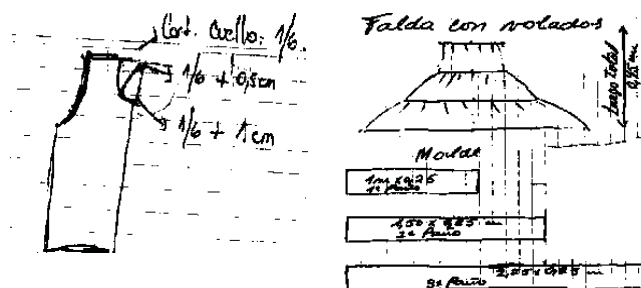 Cont. Cuello: 1/6.
1/6 + 0,5cm
1/6 + 1cm
Falda con volados
Largo Total
Molde
1m x 0,25
1º Paño
1,50 x 0,25 m
2º Paño
2,25 x 0,25 m
3º Paño